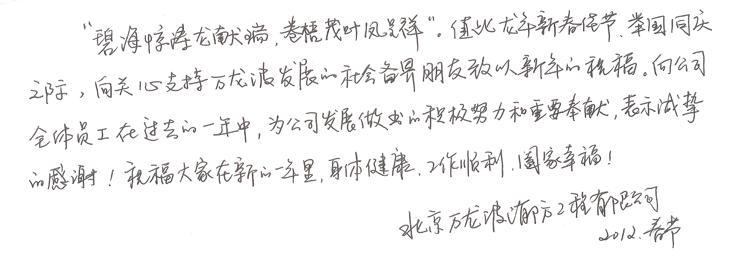 “碧海惊涛龙献瑞，卷梧茂叶凤呈祥”。值此龙年新春佳节、举国同庆
之际，向关心支持万龙波发展的社会各界朋友致以新年的祝福。向公司
全体员工在过去的一年中，为公司发展做出的积极努力和重要奉献，表示诚挚
的感谢！祝福大家在新的一年里，身体健康、工作顺利、阖家幸福！
北京万龙波消防工程有限公司
2012.春节